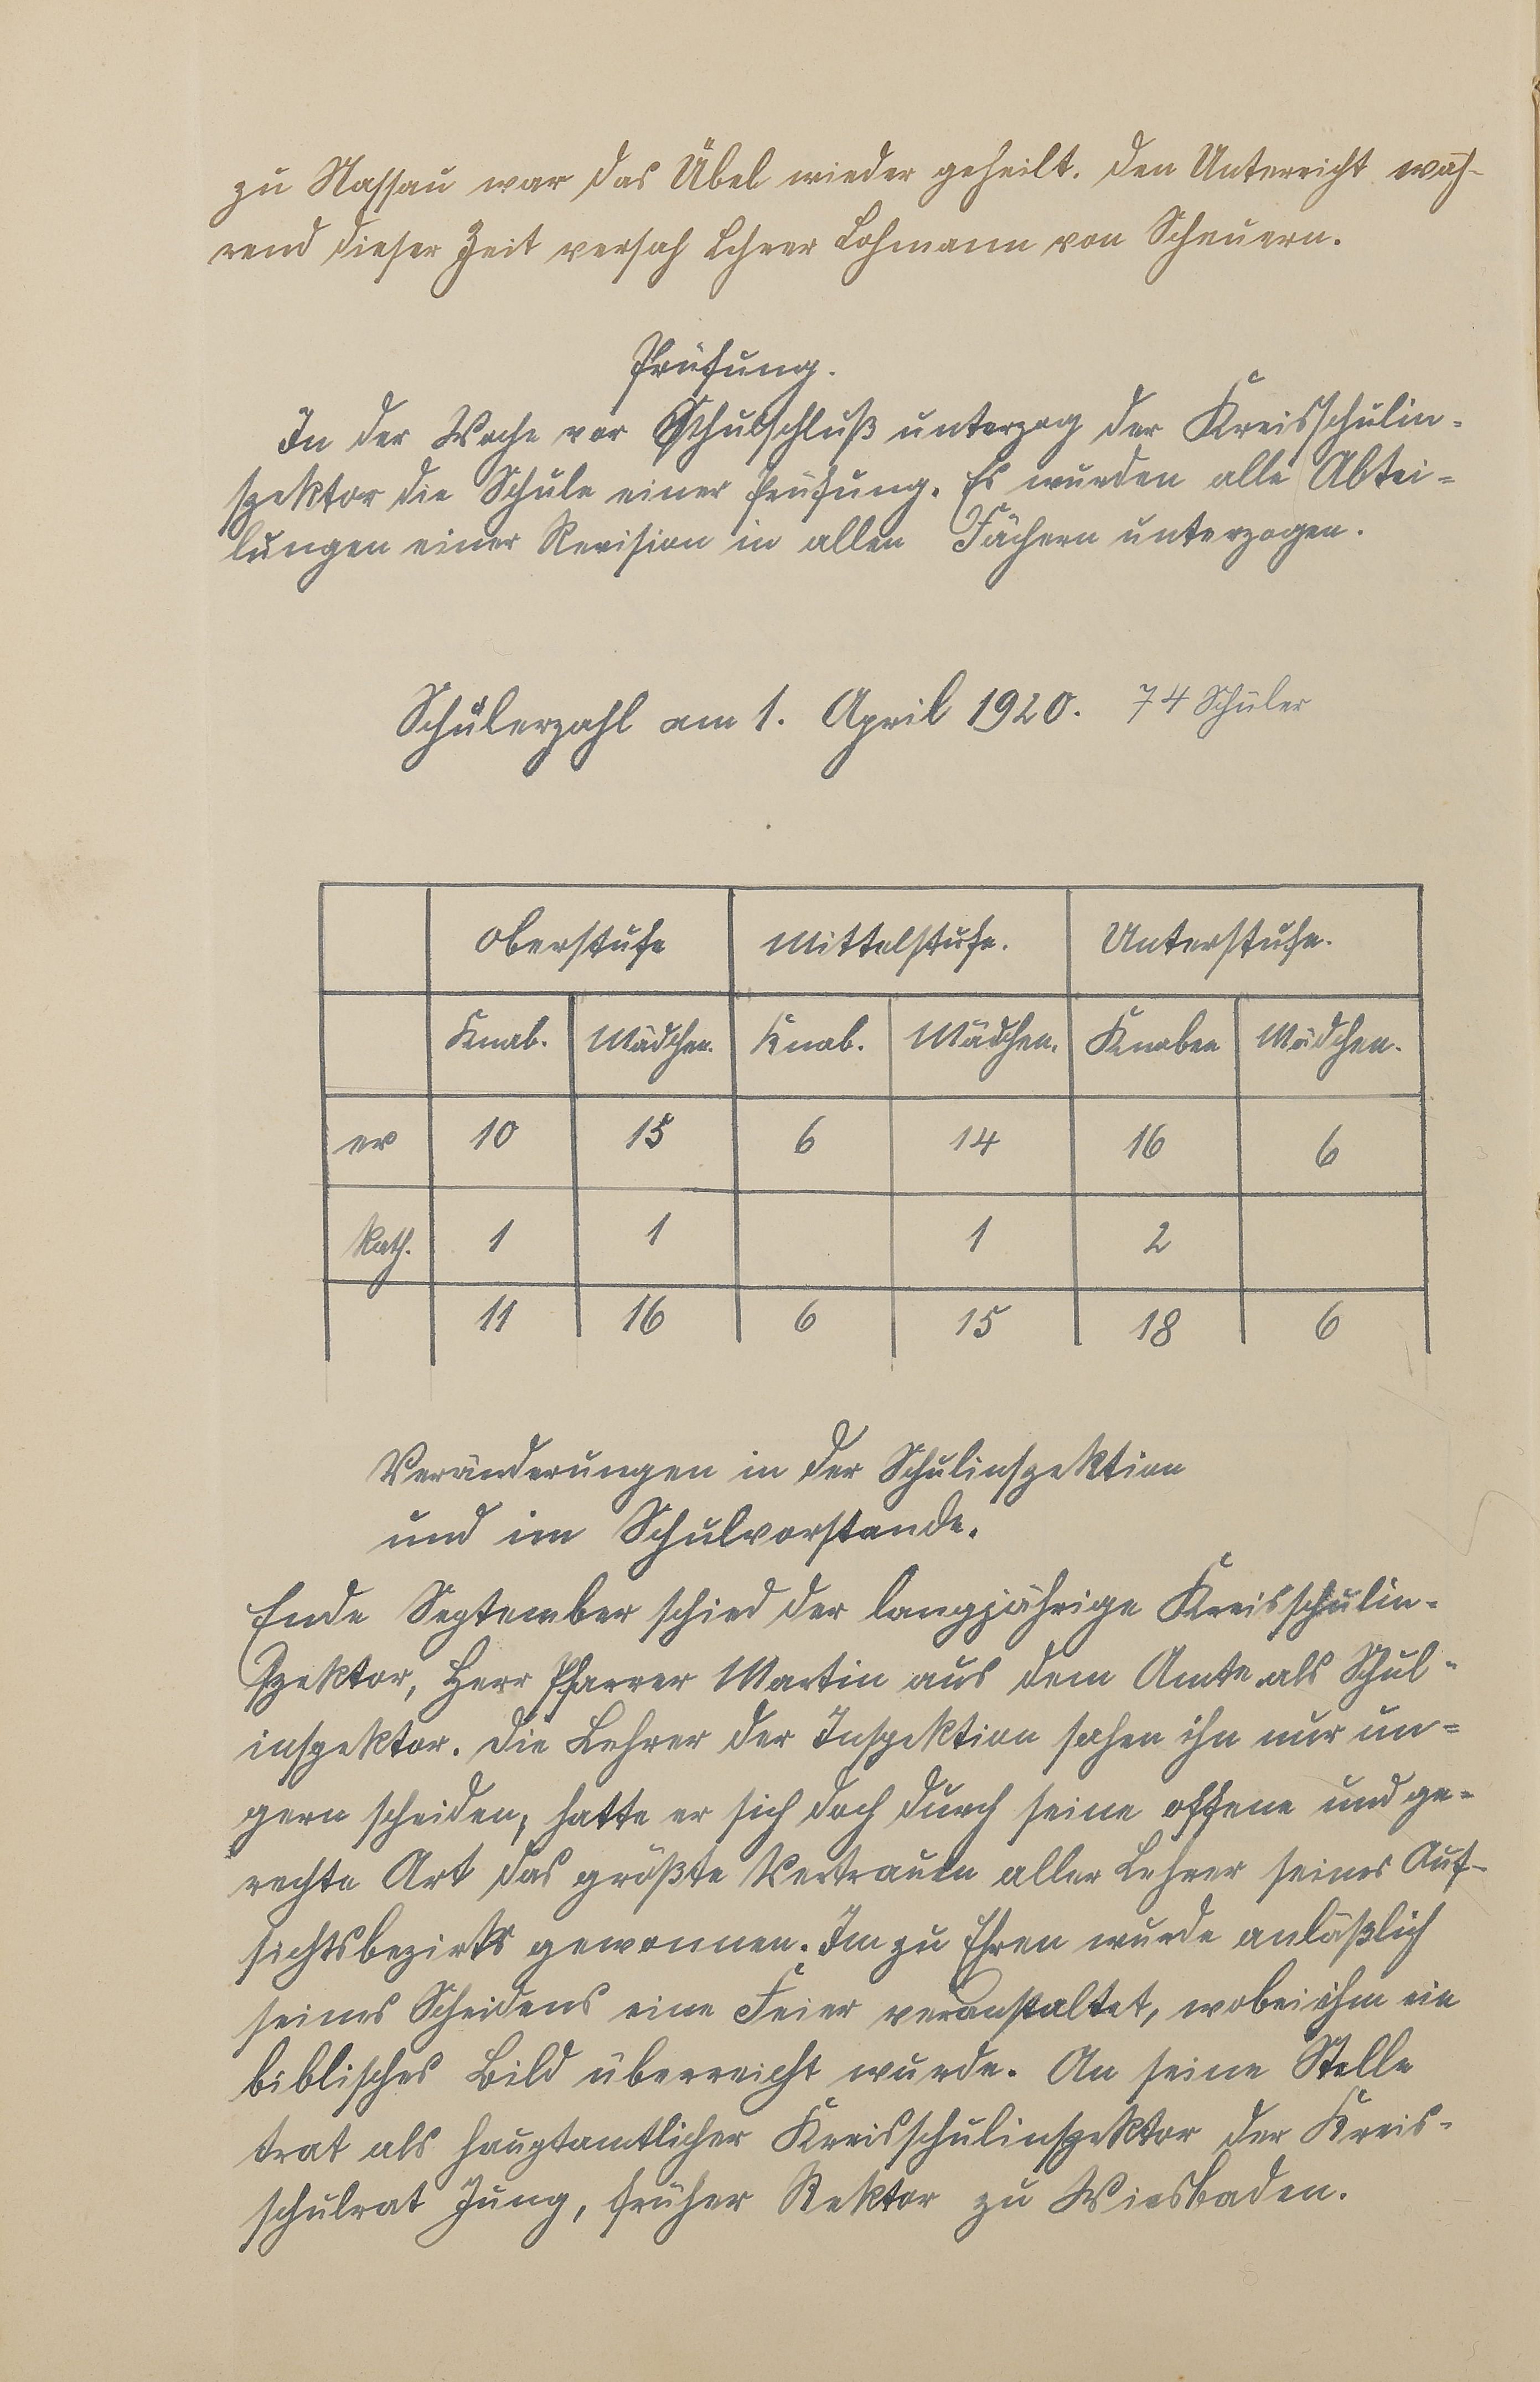 zu Nassau war das Übel wieder geheilt. Den Untereicht wäh-
rend dieser Zeit versah Lehrer Lohmann von Scheuern.
Prüfung.
In der Woche vor Schulschluß unterzog der Kreisschulin-
spektor die Schule einer Prüfung. Es wurden alle Abtei-
lungen einer Revision in allen Fächern unterzogen.
Schülerzahl am 1. April 1920. 74 Schüler
Oberstufe Mittelstufe. Unterstufe.
Knab. Mädchen. Knab. Mädchen. Knaben Mädchen.
ev 10 15 6 14 16 6
kath. 1 1 1 2
11 16 6 15 18 6
Veränderungen in der Schulinspektion
und im Schulvorstande.
Ende September schied der langjährige Kreisschulin-
spektor, Herr Pfarrer Martin aus dem Amte als Schul-
inspektor. Die Lehrer der Inspektion sahen ihn nur un-
gern scheiden, hatte er sich doch durch seine offene und ge-
rechte Art das größte Vertrauen aller Lehrer seines Auf-
sichtsbezirks gewonnen. Im zu Ehren wurde anläßlich
seines Scheidens eine Feier veranstaltet, wobei ihm ein
biblisches Bild überreicht wurde. An seine Stelle
trat als hauptamtlicher Kreisschulinspektor der Kreis-
schulrat Jung, früher Rektor zu Wiesbaden.